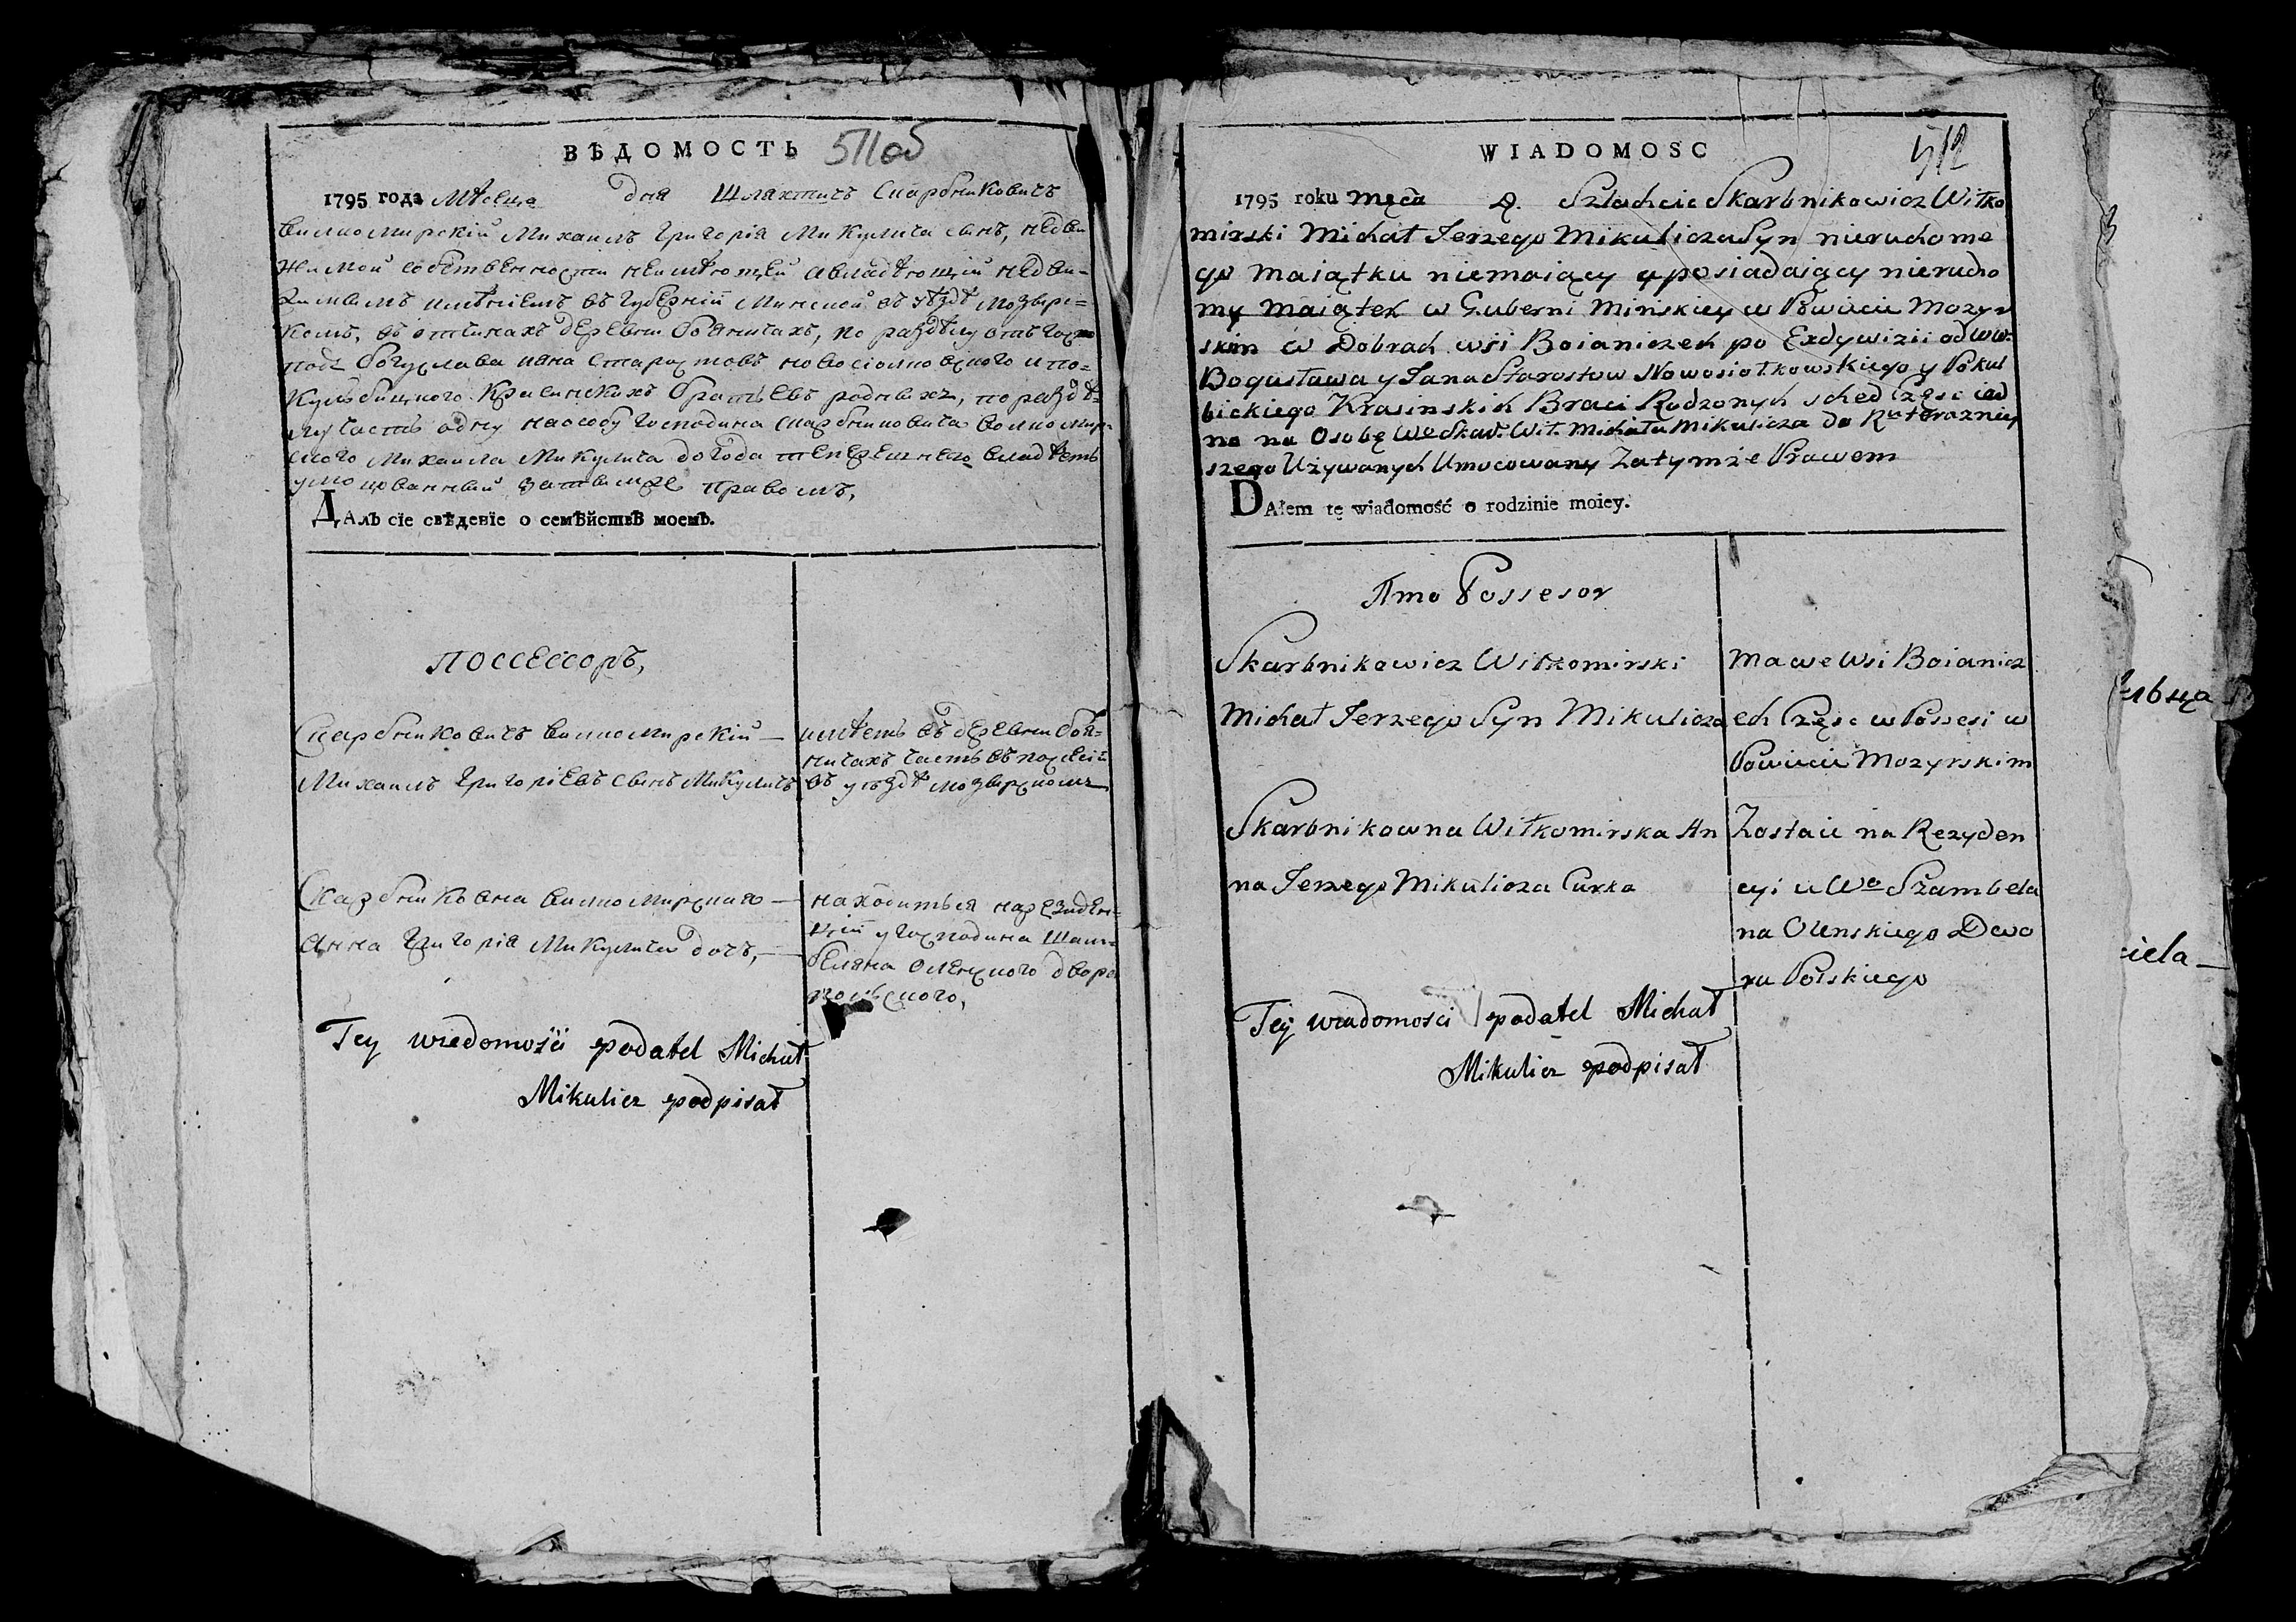 ВѢДОМОСТЬ 511об
1795 года Мѣсеца дня Шляхтичъ Скарбниковичъ
вилкомирскій Михаилъ Григорія Микулича сынъ, недви
жимой собственности неимѣющей авладѣющій недви-
жимымъ имѣніемъ въ Губерніи Минской въ уѣздѣ мозырс-
комъ, въ отчинахъ деревни бояничахъ, по раздѣлу отъ госпо
подъ богуслава ивана старостовъ новосіолковского и по-
кульбицкого Красинскихъ братьевъ родныхъ, по раздѣ-
лу часть одну наособу господина скарбниковича вилкомир-
ского Михаила Микулича до года теперешнего владѣть
умоцованный затымже правомъ,
ДАлъ сїе свѣденїе о семѣйствѣ моемъ.
поссессоръ,
Скарбниковичъ вилкомирскій —
Михаилъ Григоріевъ сынъ Микуличъ
имѣетъ въ деревни боя-
ничахъ часть въ посесіи
въ уѣздѣ мозырскомъ
Скарбниковна вилкомирского —
Анна Григорія Микулича дочь, —
находиться нарезиден-
ціи у господина Шам-
беляна оленского двора
польского,
Tey wiedomośći podatel Michał
Mikulicz podpisał
WIADOMOSC 512
1795 roku Męca D. Szlachcic Skarbnikowicz Wiłko
mirski Michał Jerzego Mikulicza Syn nieruchome
go maiątku niemaiący y posiadaiący nierucho
my maiątek w Guberni Mińskiey w Powiecie Mozyr
skim w Dobrach wsi Boianiczech po Exdywizii od WW.
Bogusława y Jana Starostow Nowosiołkowskiego y Pokul
bickiego Krasinskich Braci Rodzonych sched Częsc ied
na na Osobę Wo Skar. Wił. Michała Mikulicza do Ruterazniey
szego Używanych Umocowany Zatymże Prawem
DAłem tę wiadomość o rodzinie moiey.
Amo Possesor
Skarbnikowicz Wiłkomirski
Michał Jerzego Syn Mikulicza
ma we Wsi Boianicz
ech Częsc w Possesi w
Powiecie Mozyrskim
Skarbnikowna Wiłkomirska An
na Jerzego Mikulicza Curka
Zostaie na Rezyden
cyi u Wo Szambela
na Olenskiego Dwo
ru Polskiego
Tey wiadomości podatel Michał
Mikulicz podpisał
ciela